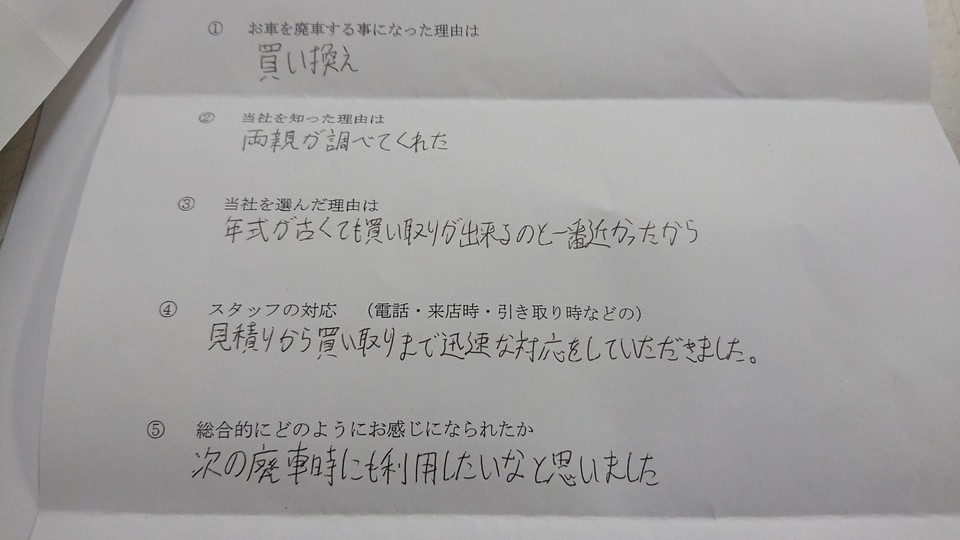 ① お車を廃車する事になった理由は
買い換え
② 当社を知った理由は
両親が調べてくれた
③ 当社を選んだ理由は
年式が古くても買い取りが出来るのと一番近かったから
④ スタッフの対応 （電話・来店時・引き取り時などの）
見積りから買い取りまで迅速な対応をしていただきました。
⑤ 総合的にどのようにお感じになられたか
次の廃車時にも利用したいなと思いました